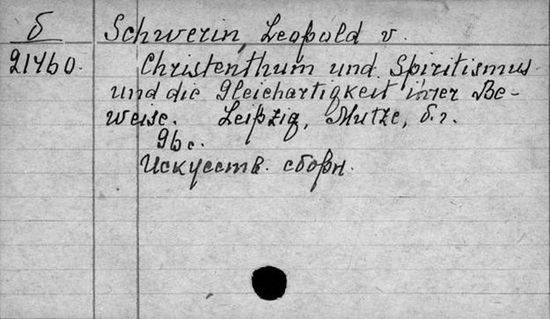 б
21460.
Schwerin, Leopold v.
Christenthum und Spiritismus
und die Gleichartigkeit ihrer Be-
weise. Leipzig, Mutze, б. г.
96 с.
Искусств. сборн.